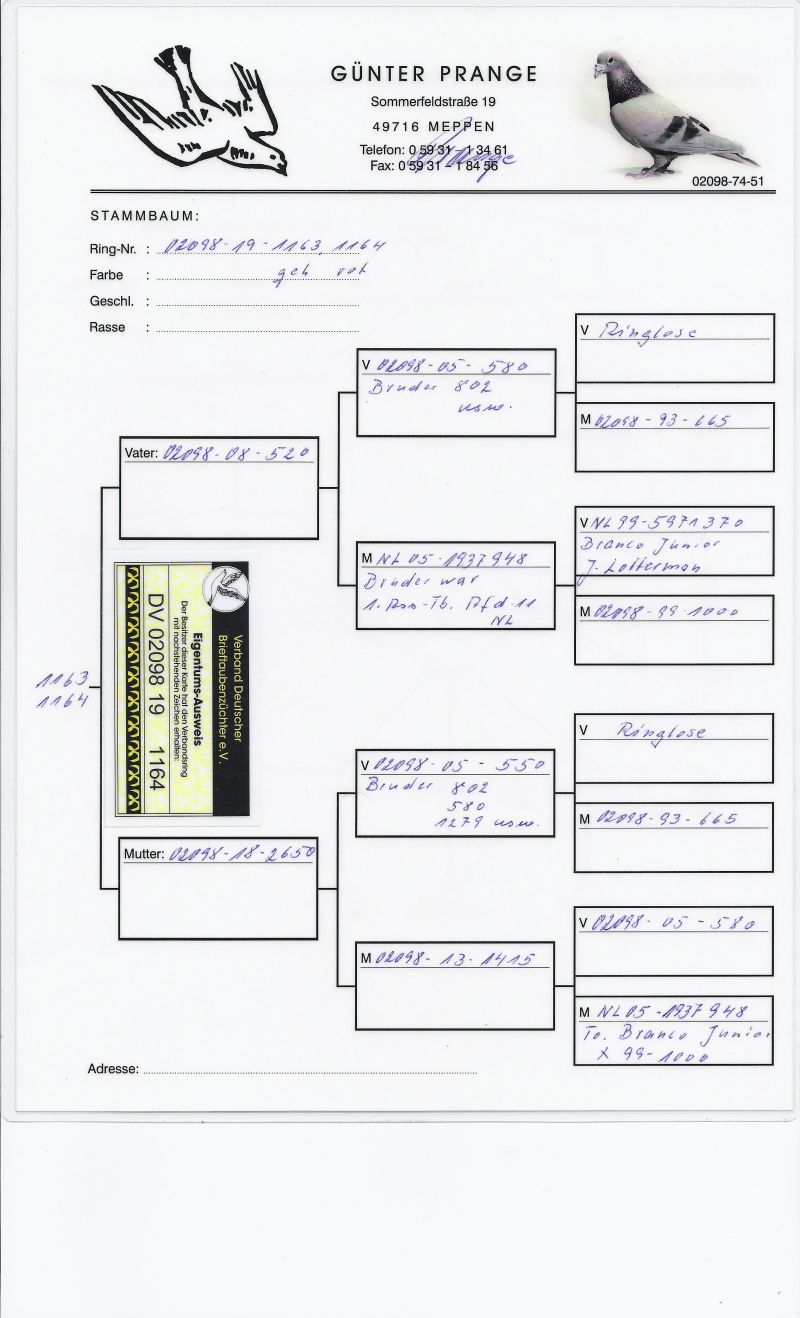 GÜNTER PRANGE
Sommerfeldstraße 19
49716 MEPPEN
Telefon: 0 59 31 - 1 34 61
Fax: 0 59 31 - 1 84 56
Prange
02098-74-51
STAMMBAUM:
Ring-Nr. : 02098-19-1163, 1164
Farbe : geh rot
Geschl. :
Rasse :
V Ringlose
V 02098-05-580
Bruder 802
usw.
M 02098-93-665
Vater: 02098-08-520
V NL 99-5971370
Branco Junior
J. Lotterman
M NL 05-1937948
Bruder war
1. Ass-Tb. Afd-11
NL
M 02098-99-1000
Verband Deutscher
Brieftaubenzüchter e.V.
Eigentums-Ausweis
Der Besitzer dieser Karte hat den Verbandsring
mit nachstehenden Zeichen erhalten:
DV 02098 19 1164
1163
1164
V Ringlose
V 02098-05-550
Bruder 802
580
1279 usw.
M 02098-93-665
Mutter: 02098-18-2650
V 02098-05-580
M 02098-13-1415
M NL 05-1937948
To. Branco Junior
x 99-1000
Adresse: